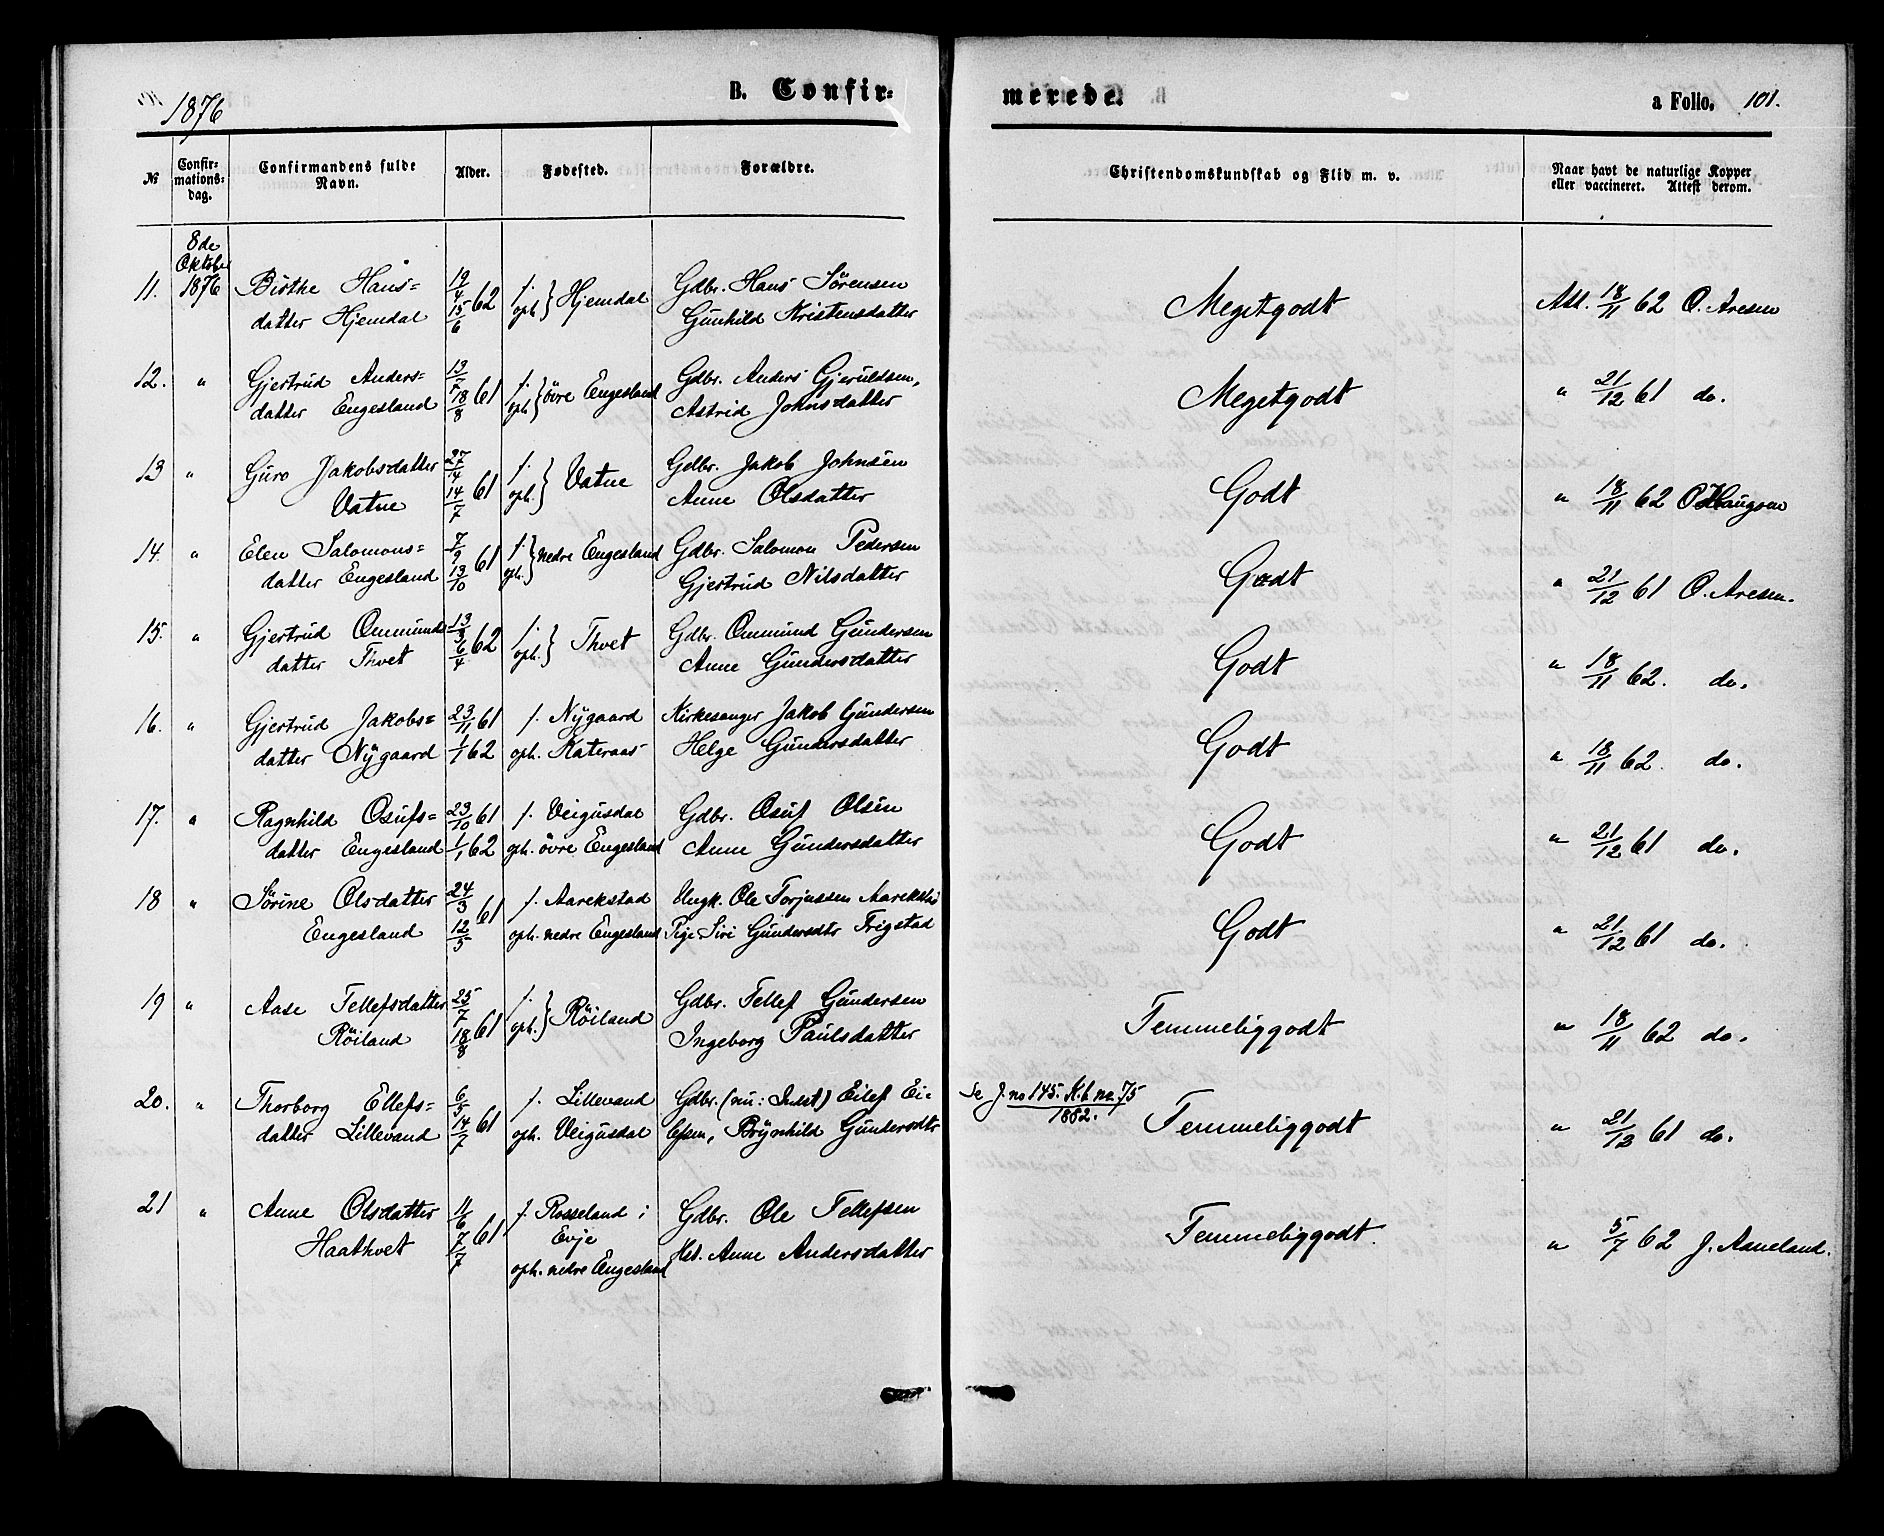 1876
B. Confir=
merede.
a Folio. 101.
№
Confir=
mations=
dag.
Confirmandens fulde
Navn.
Alder.
Fødested.
Forældre.
Christendomskundskab og Flid m. v.
Naar havt de naturlige Kopper
eller vaccineret. Attest derom.
8de
Oktober
11. 1876 Birthe Hans= 19/4 62 f. } Hjemdal Gdbr. Hans Sörensen Megetgodt Att. 18/11 62 O. Aresen
datter Hjemdal 15/6 oph. Gunhild Kristensdatter
12. " Gjertrud Anders= 13/7 61 f. } övre Engesland Gdbr. Anders Gjeruldsen, Megetgodt " 21/12 61 do.
datter Engesland 18/8 oph. Astrid Johnsdatter
13 " Guro Jakobsdatter 27/4 61 f. } Vatne Gdbr. Jakob Johnsen Godt " 18/11 62 O Haugom
Vatne 14/7 oph. Anne Olsdatter
14. " Elen Salomons= 7/9 61 f. } nedre Engesland Gdbr. Salomon Pedersen Godt " 21/12 61 O. Aresen.
datter Engesland 13/10 oph. Gjertrud Nilsdatter
15. " Gjertrud Ommunds 13/3 62 f. } Thvet Gdbr. Ommund Gundersen Godt " 18/11 62. do.
datter Thvet 6/4 oph. Anne Gundersdatter
16. " Gjertrud Jakobs= 23/11 61 f. Nygaard Kirkesanger Jakob Gundersen Godt " 18/11 62. do.
datter Nygaard 1/1 62 oph. Kateraas Helge Gundersdatter
17. " Ragnhild Osufs= 23/10 61 f. Veigusdal Gdbr. Osuf Olsen Godt " 21/12 61 do.
datter Engesland 1/1 62 oph. övre Engesland Anne Gundersdatter
18 " Sörine Olsdatter 24/3 61 f. Aarekstad Ungk. Ole Torjussen Aarekstd Godt " 21/12 61 do.
Engesland 12/5 oph. nedre Engesland Pige Siri Gundersdtr Frigstad
19 " Aase Tellefsdatter 25/7 61 f. } Röiland Gdbr. Tellef Gundersen Temmeliggodt " 18/11 62 do.
Röiland 18/8 oph. Ingeborg Paulsdatter
20. " Thorborg Ellefs= 6/5 61 f. Lillevand Gdbr. (nu: Indst) Eilef Ei- Se J. no 145. K.b. no. 75 / 1882. Temmeliggodt " 21/12 61 do.
datter Lillevand 14/7 oph. Veigusdal lefsen, Brynhild Gundersdtr
21 " Anne Olsdatter 11/6 61 f. Rosseland i Gdbr. Ole Tellefsen Temmeliggodt. " 5/7 62 J. Aaneland.
Haathvet 7/7 Evje Anne Andersdatter
oph. nedre Engesland